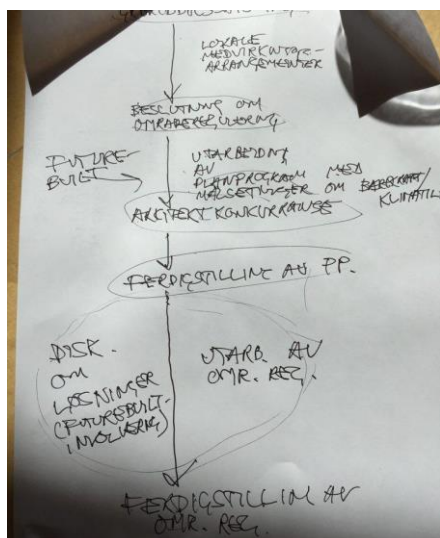 LOKALE
MEDVIRKNINGS-
ARRANGEMENTER
BESLUTNING OM
OMRÅDEREGULERING
FUTURE-
BUILT
UTARBEIDING
AV
PLANPROGRAM MED
MÅLSETNINGER OM BÆREKRAFT/
ARKITEKTKONKURRANSE
FERDIGSTILLING AV PP.
DISK.
OM
LØSNINGER
(FUTUREBUILT-
INVOLVERING)
UTARB. AV
OMR. REG.
FERDIGSTILLING AV
OMR. REG.